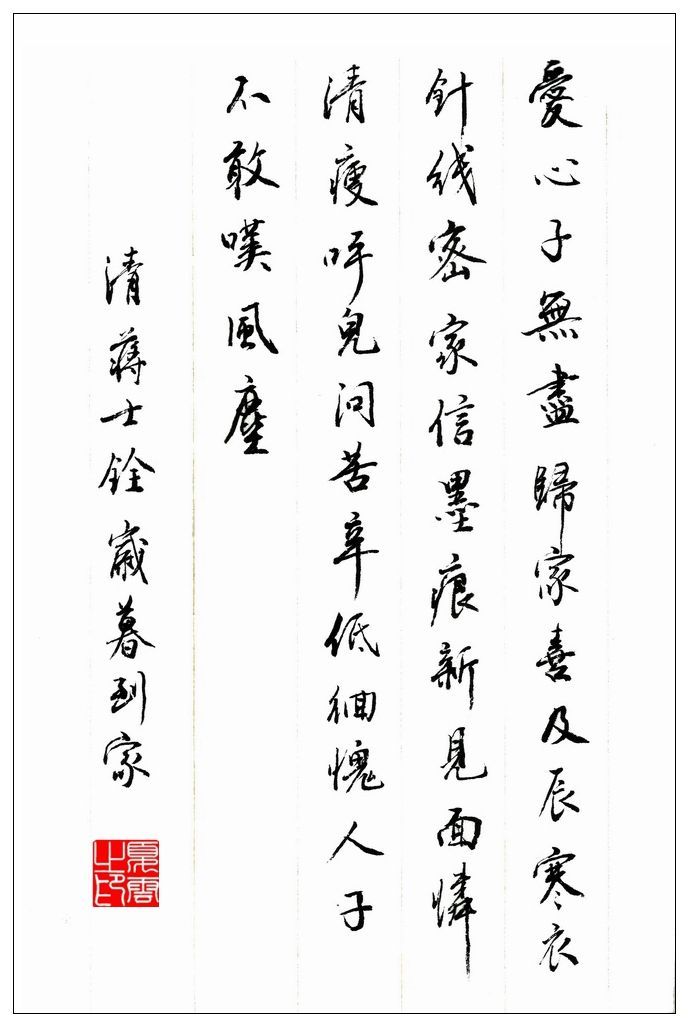 愛心子無盡歸家喜及辰寒衣
針线密家信墨痕新見面憐
清瘦呼兒問苦辛低徊愧人子
不敢嘆風塵
清蔣士銓歲暮到家
雲之印